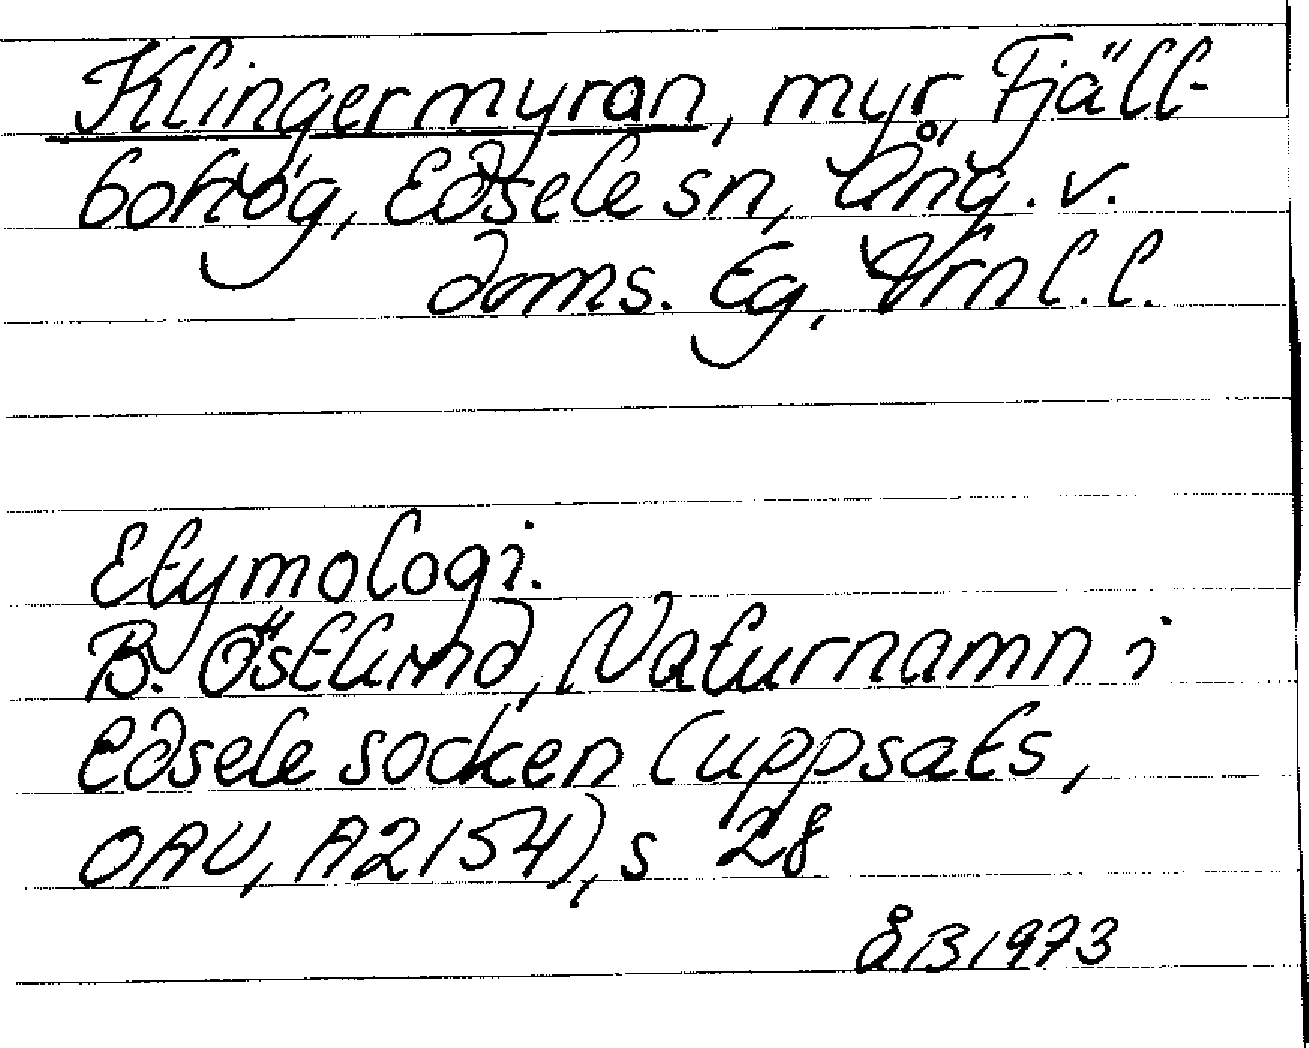 Klingermyran, myr, Fjäll-
bohög, Edsele sn, Ång. v.
doms. Eg, Vrnl.l.
Etymologi.
B. Östlund, Naturnamn i
Edsele socken (uppsats,
OAU, A2154), s 28
ÅB 1973